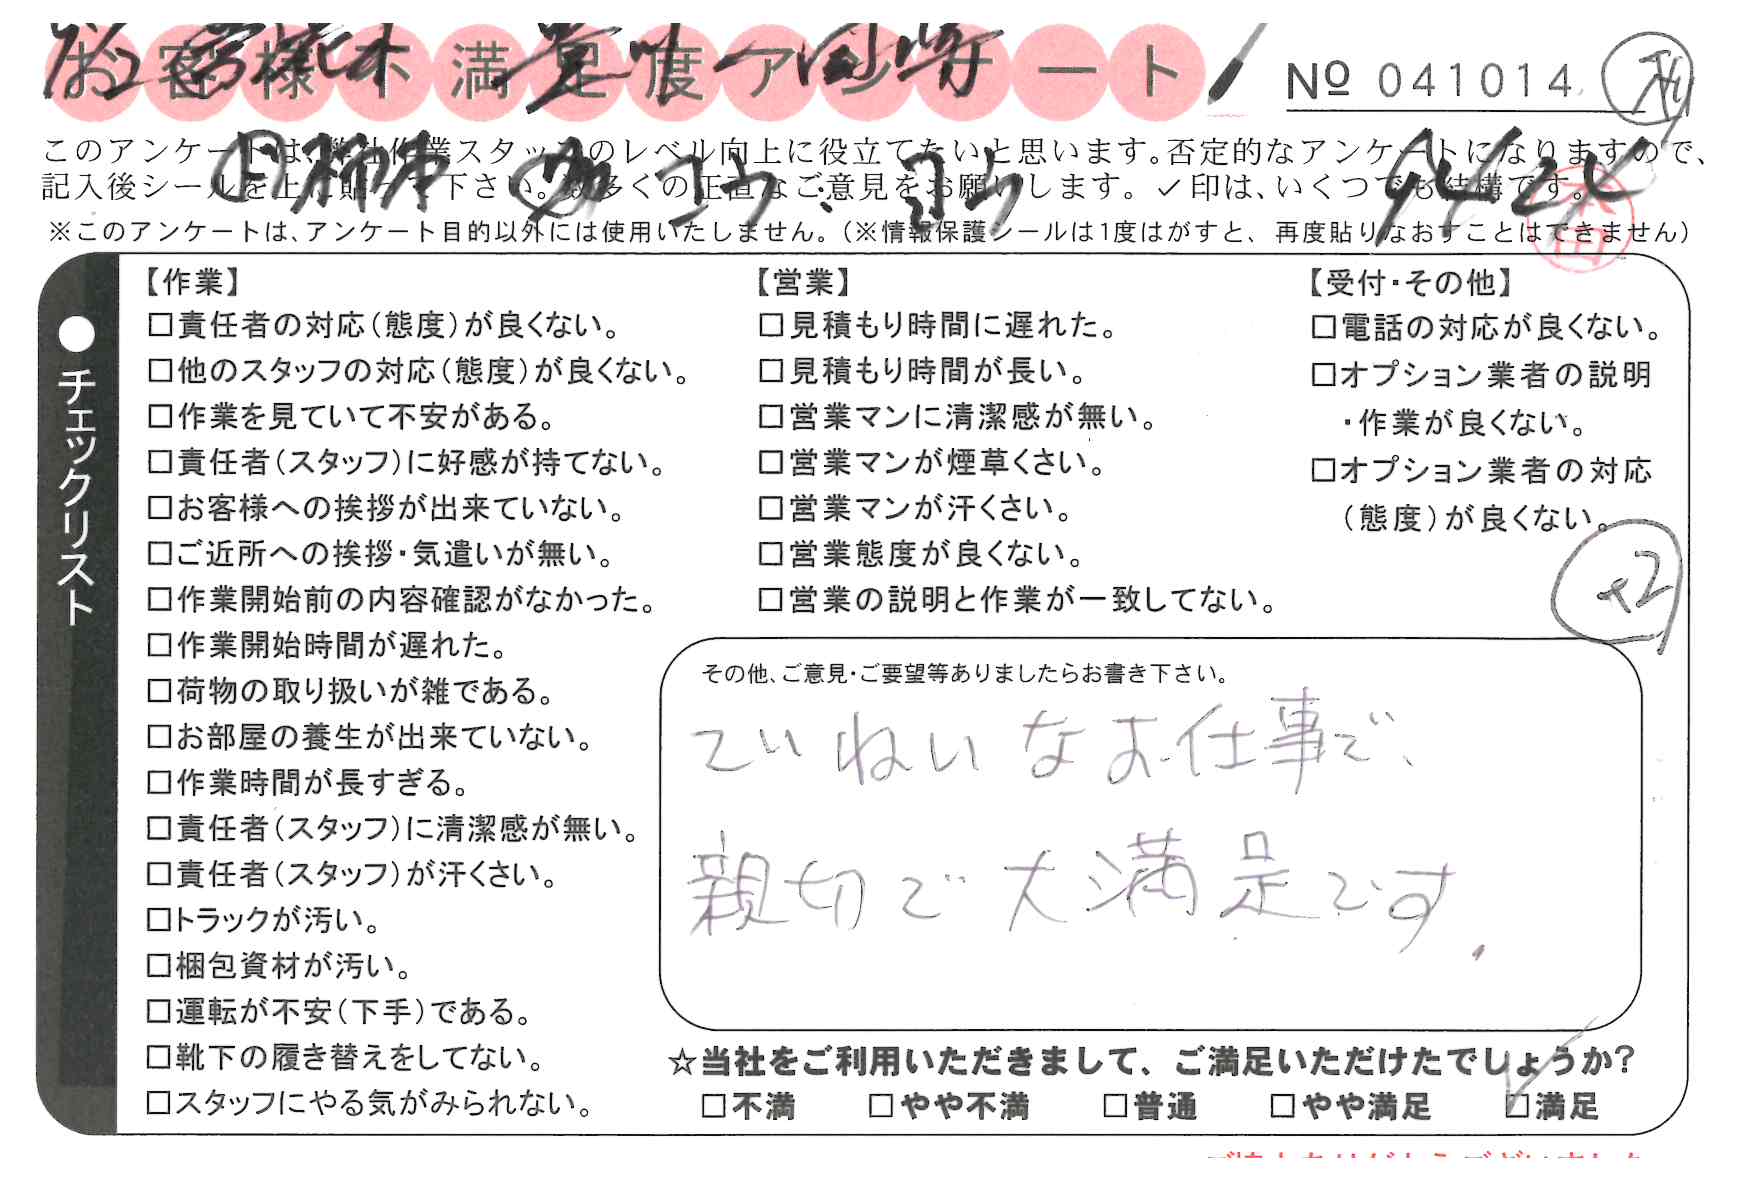 お客様不満足度アンケート
№ 041014
このアンケートは、弊社作業スタッフのレベル向上に役立てたいと思います。否定的なアンケートになりますので、
記入後シールを上に貼って下さい。数多くの正直なご意見をお願いします。✓印は、いくつでも結構です。
※このアンケートは、アンケート目的以外には使用いたしません。(※情報保護シールは1度はがすと、再度貼りなおすことはできません)
本田
●チェックリスト
【作業】
□責任者の対応(態度)が良くない。
□他のスタッフの対応(態度)が良くない。
□作業を見ていて不安がある。
□責任者(スタッフ)に好感が持てない。
□お客様への挨拶が出来ていない。
□ご近所への挨拶・気遣いが無い。
□作業開始前の内容確認がなかった。
□作業開始時間が遅れた。
□荷物の取り扱いが雑である。
□お部屋の養生が出来ていない。
□作業時間が長すぎる。
□責任者(スタッフ)に清潔感が無い。
□責任者(スタッフ)が汗くさい。
□トラックが汚い。
□梱包資材が汚い。
□運転が不安(下手)である。
□靴下の履き替えをしてない。
□スタッフにやる気がみられない。
【営業】
□見積もり時間に遅れた。
□見積もり時間が長い。
□営業マンに清潔感が無い。
□営業マンが煙草くさい。
□営業マンが汗くさい。
□営業態度が良くない。
□営業の説明と作業が一致してない。
【受付・その他】
□電話の対応が良くない。
□オプション業者の説明
・作業が良くない。
□オプション業者の対応
(態度)が良くない。
+2
その他、ご意見・ご要望等ありましたらお書き下さい。
ていねいなお仕事で、
親切で大満足です.
☆当社をご利用いただきまして、ご満足いただけたでしょうか?
□不満 □やや不満 □普通 □やや満足 ☑満足